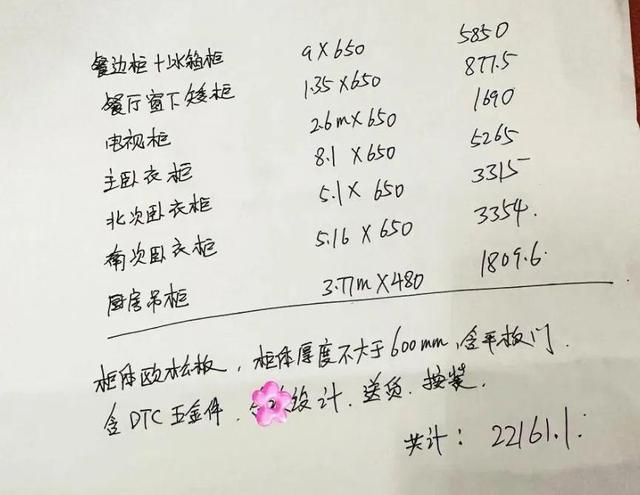 餐边柜+冰箱柜 9×650 5850
餐厅窗下矮柜 1.35×650 877.5
电视柜 2.6m×650 1690
主卧衣柜 8.1×650 5265
北次卧衣柜 5.1×650 3315
南次卧衣柜 5.16×650 3354.
厨房吊柜 3.77m×480 1809.6.
柜体欧松板，柜体厚度不大于600mm，含平板门.
含DTC五金件. 设计. 送货. 按装.
共计：22161.1.